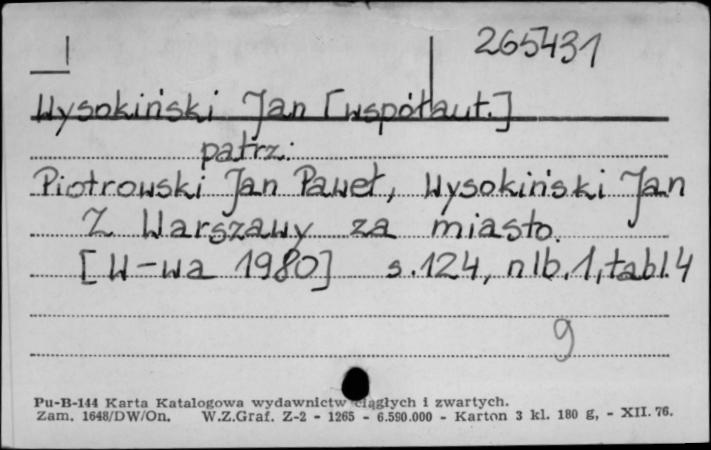 265431
Wysokiński Jan [współaut.]
patrz:
Piotrowski Jan Paweł, Wysokiński Jan
Z Warszawy za miasto.
[W-wa 1980] s.124, nlb.1, tabl.4
9
Pu-B-144 Karta Katalogowa wydawnictw ciągłych i zwartych.
Zam. 1648/DW/On. W.Z.Graf. Z-2 - 1265 - 6.590.000 - Karton 3 kl. 180 g, - XII. 76.